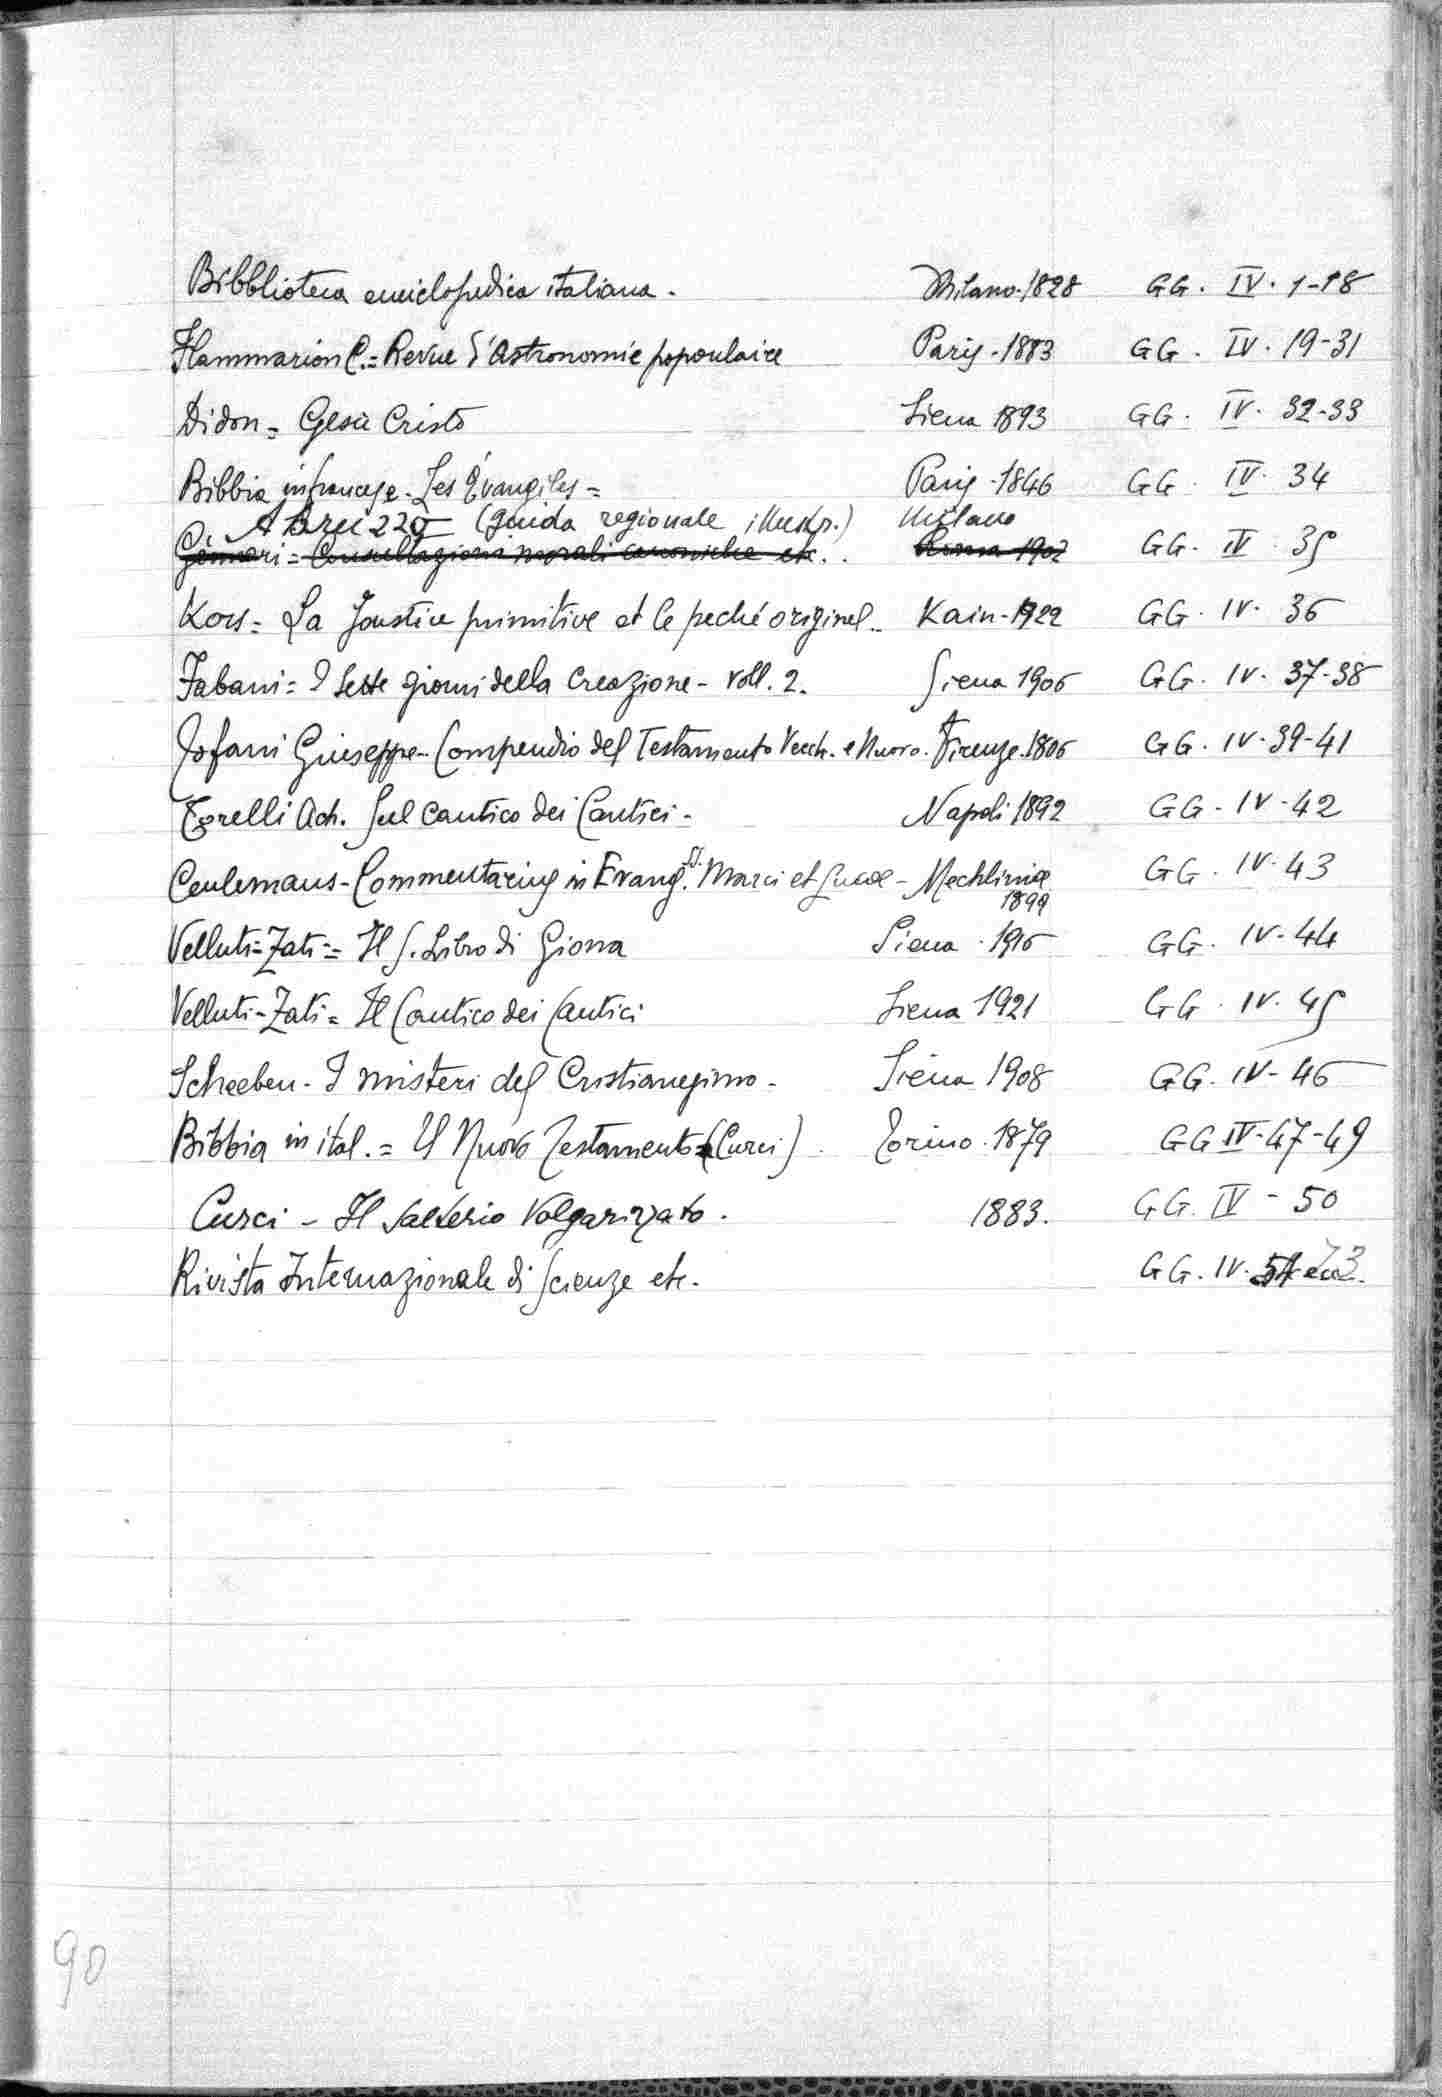 Bibblioteca enciclopedica italiana. Milano-1828 GG. IV. 1-18
Flammarion C. = Revue d'Astronomie popoulaire Paris-1883 GG. IV. 19-31
Didon = Gesù Cristo Siena 1893 GG. IV. 32-33
Bibbia in francese. Les Évangiles = Paris-1846 GG. IV. 34
Abruzzo (guida regionale illustr.) Milano
Gennari = Consultazioni morali canoniche etc. Roma 1902 GG. IV 35
Kors = La Joustice primitive et le peché originel. Kain-1922 GG. IV. 36
Fabani = I sette giorni della Creazione - voll. 2. Siena 1906 GG. IV. 37-38
Jofani Giuseppe - Compendio del Testamento Vecch. e Nuovo. Firenze. 1806 GG. IV-39-41
Torelli Ach. Sul Cantico dei Cantici - Napoli 1892 GG - IV-42
Ceulemans - Commentarius in Evang. S. Marci et Lucae - Mechliniae GG. IV. 43
1899
Velluti-Zati = Il S. Libro di Giona Siena. 1916 GG. IV-44
Velluti-Zati = Il Cantico dei Cantici Siena 1921 GG. IV. 45
Scheeben - I misteri del Cristianesimo - Siena 1908 GG. IV-46
Bibbia in ital. = Il Nuovo Testamento (Curci) Torino. 1879 GG IV-47-49
Curci - Il Salterio Volgarizzato. 1883. GG. IV - 50
Rivista Internazionale di Scienze etc. GG. IV. 73
90